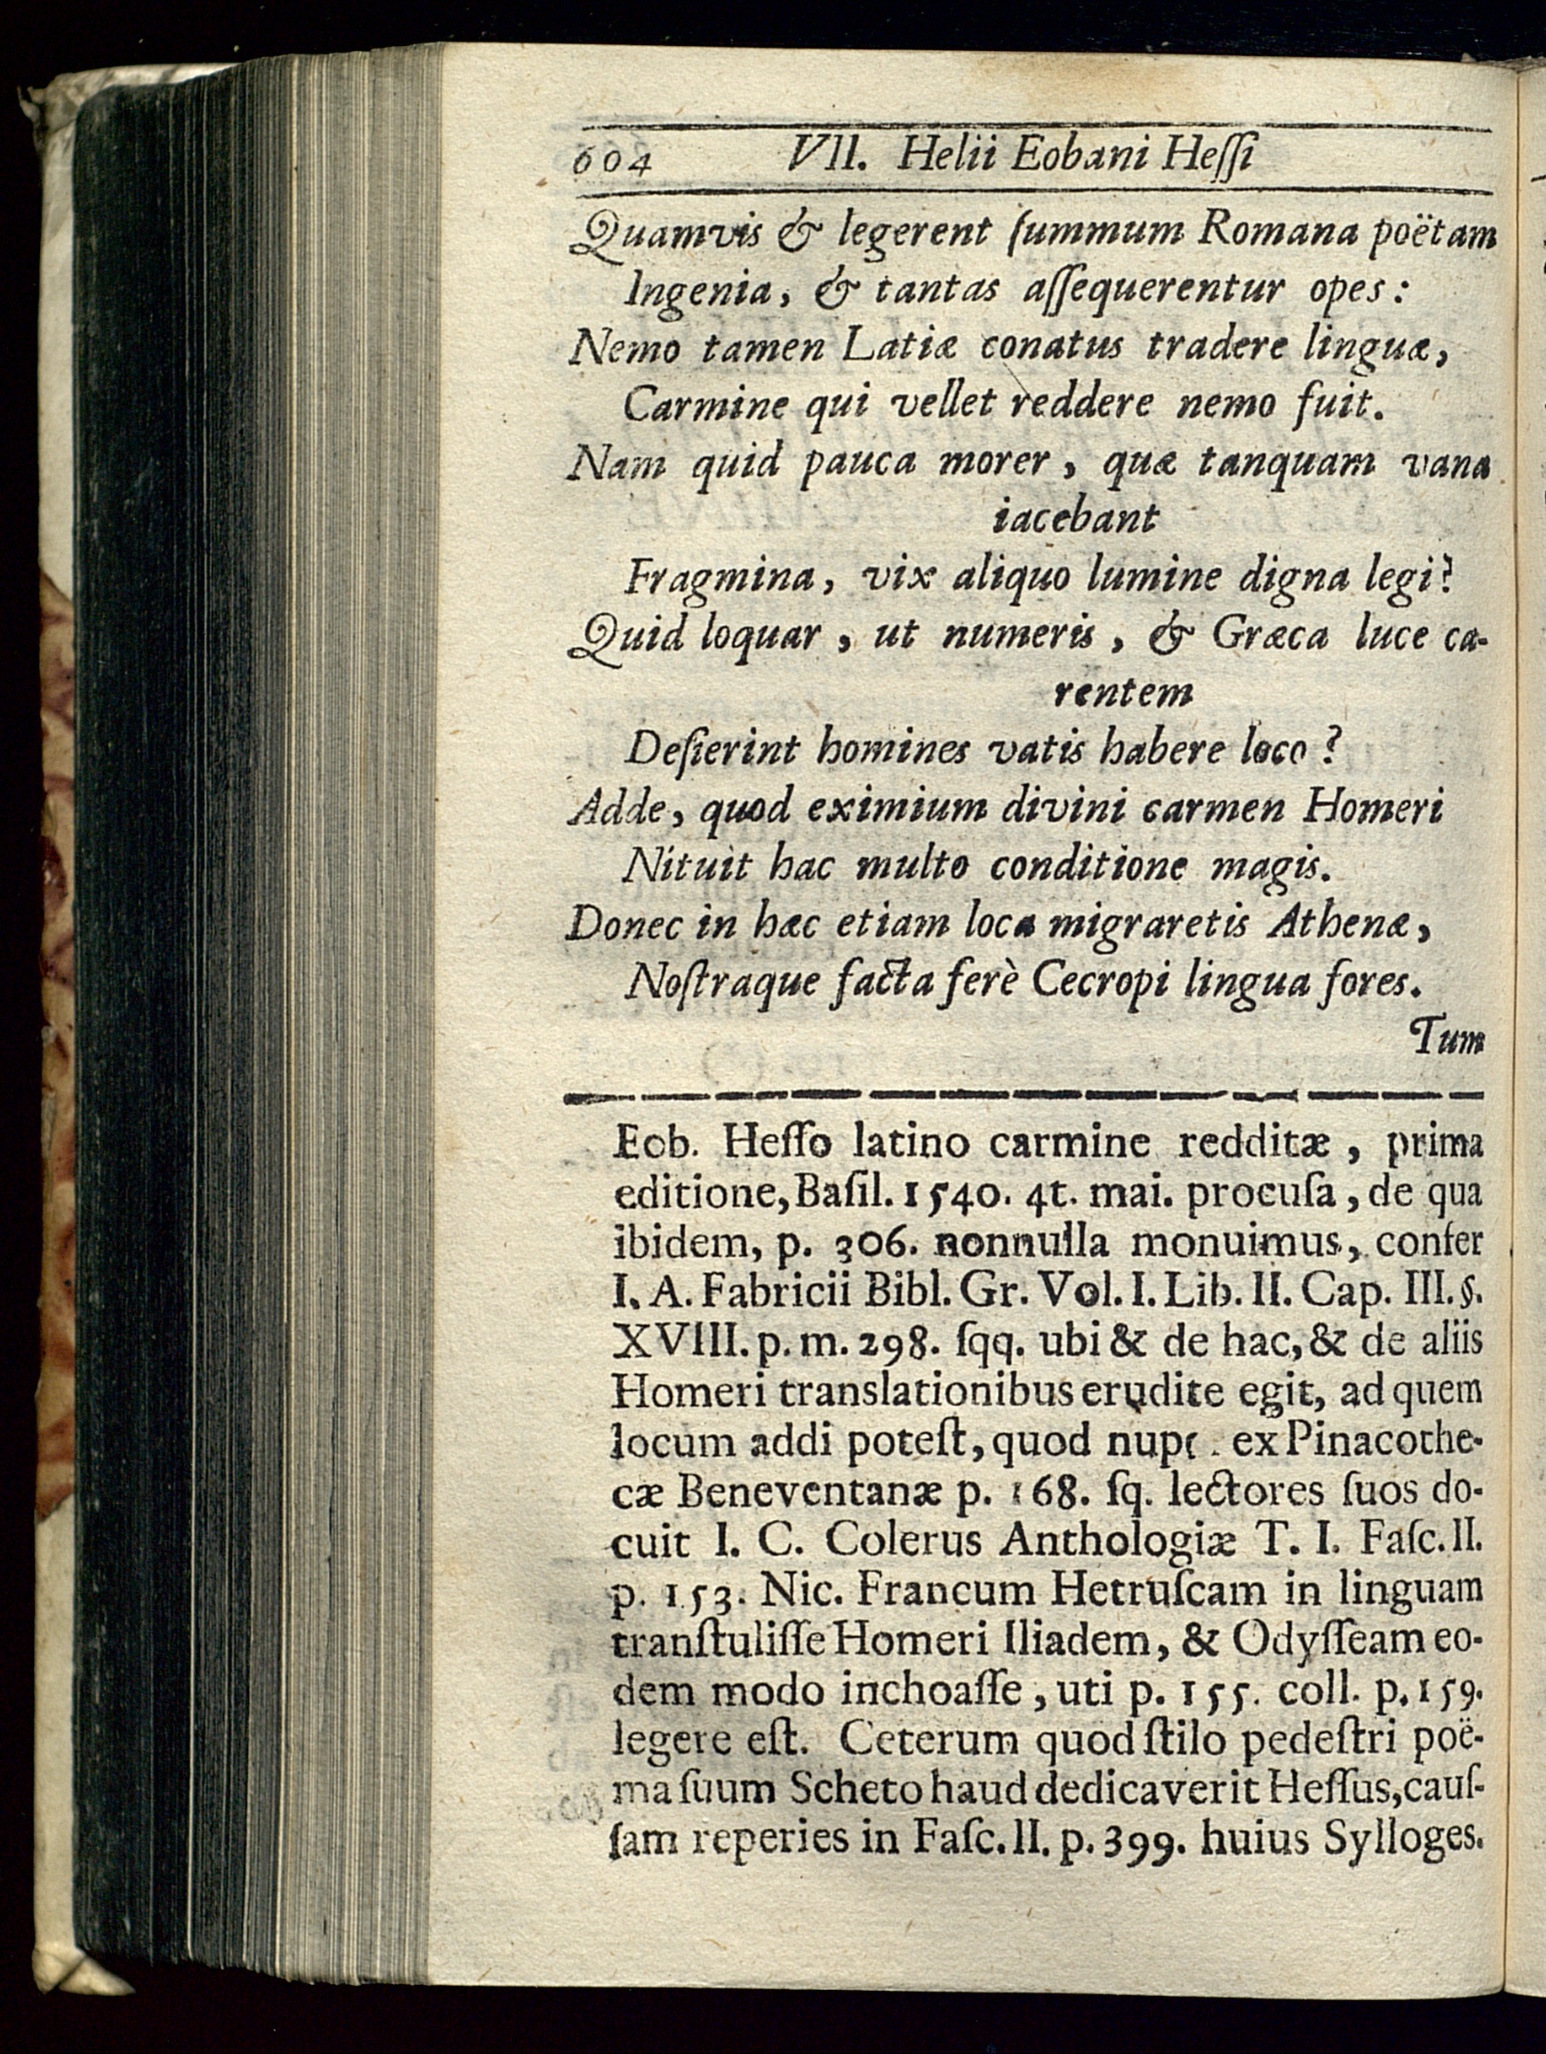 604 VII. Helii Eobani Heſſi
Quamvis & legerent ſummum Romana poëtam
Ingenia, & tantas aſſequerentur opes:
Nemo tamen Latiæ conatus tradere linguæ,
Carmine qui vellet reddere nemo fuit.
Nam quid pauca morer, quæ tanquam vana
iacebant
Fragmina, vix aliquo lumine digna legi?
Quid loquar, ut numeris, & Græca luce ca-
rentem
Deſierint homines vatis habere loco?
Adde, quod eximium divini carmen Homeri
Nituit hac multo conditione magis.
Donec in hæc etiam loca migraretis Athenæ,
Noſtraque facta ferè Cecropi lingua fores.
Tum
Eob. Heſſo latino carmine redditæ, prima
editione, Baſil. 1540. 4t. mai. procuſa, de qua
ibidem, p. 306. nonnulla monuimus, confer
I. A. Fabricii Bibl. Gr. Vol. I. Lib. II. Cap. III. §.
XVIII. p. m. 298. ſqq. ubi & de hac, & de aliis
Homeri translationibus erudite egit, ad quem
locum addi poteſt, quod ex Pinacothe-
cæ Beneventanæ p. 168. ſq. lectores ſuos do-
cuit I. C. Colerus Anthologiæ T. I. Faſc. II.
p. 153. Nic. Francum Hetruſcam in linguam
tranſtuliſſe Homeri Iliadem, & Odyſſeam eo-
dem modo inchoaſſe, uti p. 155. coll. p. 159.
legere eſt. Ceterum quod ſtilo pedeſtri poë-
ma ſuum Scheto haud dedicaverit Heſſus, cauſ-
ſam reperies in Faſc. II. p. 399. huius Sylloges.